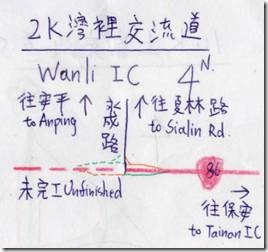 2K灣裡交流道
Wanli IC
4N.
往安平
to Anping
永成路
往夏林路
to Sialin Rd.
86
未完工Unfinished
往保安
to Tainan IC